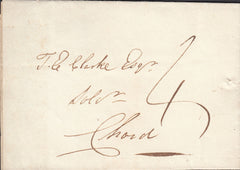 T. E. Clarke Esqr
Solr 4
Chard